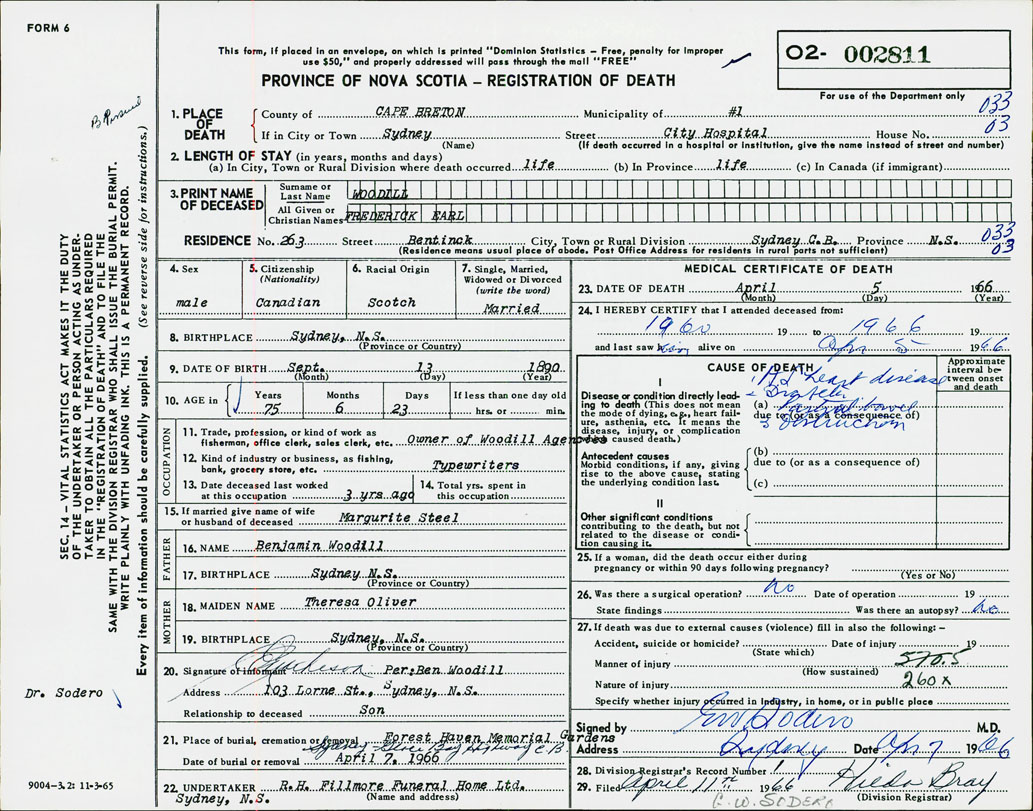 FORM 6
This form, if placed in an envelope, on which is printed "Dominion Statistics – Free, penalty for improper
use $50," and properly addressed will pass through the mail "FREE"
PROVINCE OF NOVA SCOTIA – REGISTRATION OF DEATH
O2- 002811
For use of the Department only
1. PLACE OF DEATH County of CAPE BRETON Municipality of #1 033
If in City or Town Sydney Street City Hospital House No. 03
(Name) (If death occurred in a hospital or institution, give the name instead of street and number)
2. LENGTH OF STAY (in years, months and days)
(a) In City, Town or Rural Division where death occurred life (b) In Province life (c) In Canada (if immigrant)
3. PRINT NAME OF DECEASED Surname or Last Name WOODILL
All Given or Christian Names FREDERICK EARL
RESIDENCE No. 263 Street Bentinck City, Town or Rural Division Sydney C.B. Province N.S. 033
(Residence means usual place of abode. Post Office Address for residents in rural parts not sufficient) 03
4. Sex male
5. Citizenship (Nationality) Canadian
6. Racial Origin Scotch
7. Single, Married, Widowed or Divorced (write the word) Married
8. BIRTHPLACE Sydney, N.S.
(Province or Country)
9. DATE OF BIRTH Sept. 13 1890
(Month) (Day) (Year)
10. AGE in Years 75 Months 6 Days 23 If less than one day old hrs. or min.
OCCUPATION
11. Trade, profession, or kind of work as
fisherman, office clerk, sales clerk, etc. Owner of Woodill Agencies
12. Kind of industry or business, as fishing,
bank, grocery store, etc. Typewriters
13. Date deceased last worked at this occupation 3 yrs ago
14. Total yrs. spent in this occupation
15. If married give name of wife
or husband of deceased Margurite Steel
FATHER
16. NAME Benjamin Woodill
17. BIRTHPLACE Sydney N.S.
(Province or Country)
MOTHER
18. MAIDEN NAME Theresa Oliver
19. BIRTHPLACE Sydney, N.S.
(Province or Country)
20. Signature of informant Per:Ben Woodill
Address 103 Lorne St., Sydney, N.S.
Relationship to deceased Son
21. Place of burial, cremation or removal Forest Haven Memorial Gardens
Sydney Glace Bay Highway C.B.
Date of burial or removal April 7, 1966
22. UNDERTAKER R.H. Fillmore Funeral Home Ltd.
Sydney, N.S. (Name and address)
MEDICAL CERTIFICATE OF DEATH
23. DATE OF DEATH April 5 1966
(Month) (Day) (Year)
24. I HEREBY CERTIFY that I attended deceased from:
1960 19 to 1966 19
and last saw him alive on Apr 5 1966
CAUSE OF DEATH
Approximate interval between onset and death
I
Disease or condition directly leading to death (This does not mean the mode of dying, e.g., heart failure, asthenia, etc. It means the disease, injury, or complication which caused death.)
1 heart disease
2 Diabetes
(a) bowel
due to (or as a consequence of)
3 obstruction
Antecedent causes
Morbid conditions, if any, giving rise to the above cause, stating the underlying condition last.
(b)
due to (or as a consequence of)
(c)
II
Other significant conditions
contributing to the death, but not related to the disease or condition causing it.
25. If a woman, did the death occur either during
pregnancy or within 90 days following pregnancy?
(Yes or No)
26. Was there a surgical operation? no Date of operation 19
State findings Was there an autopsy? no
27. If death was due to external causes (violence) fill in also the following: –
Accident, suicide or homicide? Date of injury 19
(State which)
Manner of injury 570.5
(How sustained)
Nature of injury 260x
Specify whether injury occurred in industry, in home, or in public place
Signed by EW Sodero M.D.
Address Sydney Date Apr 7 1966
28. Division Registrar's Record Number
29. Filed April 11th 1966 Hilda Bray
(Division Registrar)
E.W. SODERO
SEC. 14 – VITAL STATISTICS ACT MAKES IT THE DUTY
OF THE UNDERTAKER OR PERSON ACTING AS UNDER-
TAKER TO OBTAIN ALL THE PARTICULARS REQUIRED
IN THE "REGISTRATION OF DEATH" AND TO FILE THE
SAME WITH THE DIVISION REGISTRAR WHO SHALL ISSUE THE BURIAL PERMIT.
WRITE PLAINLY WITH UNFADING INK. THIS IS A PERMANENT RECORD.
Every item of information should be carefully supplied. (See reverse side for instructions.)
Dr. Sodero
9004-3.2: 11-3-65